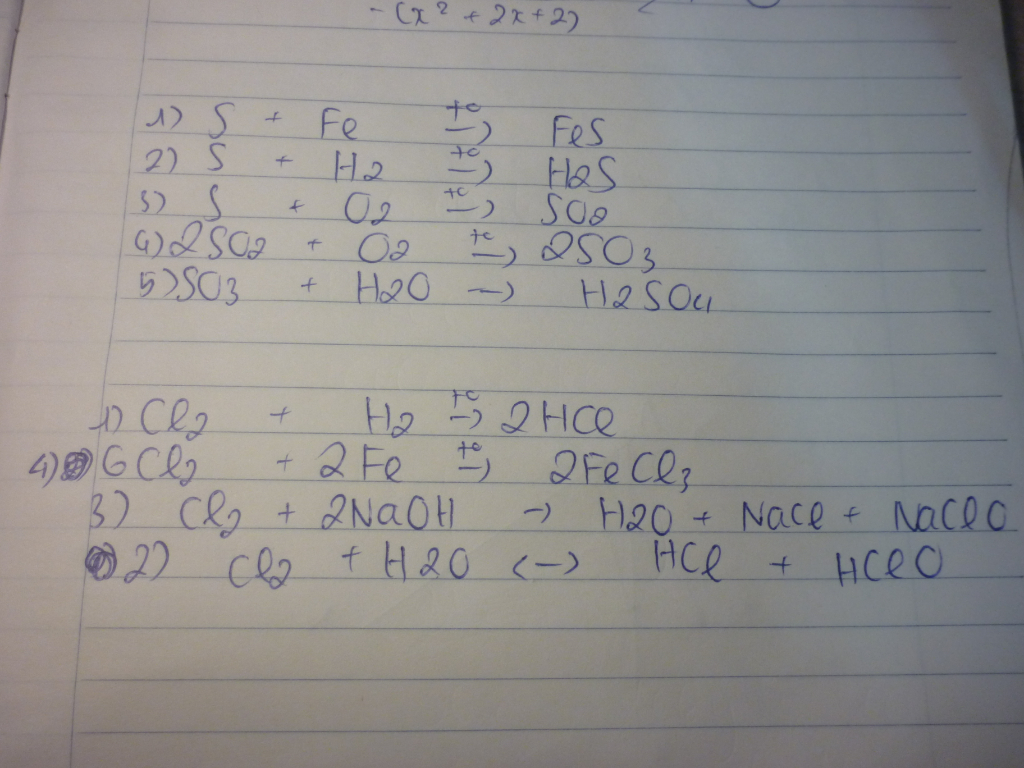 -(x² + 2x + 2)
1) S + Fe t° → FeS
2) S + H2 t° → H2S
3) S + O2 t° → SO2
4) 2SO2 + O2 t° → 2SO3
5) SO3 + H2O → H2SO4
1) Cl2 + H2 t° → 2HCl
4) 6Cl2 + 2Fe t° → 2FeCl3
3) Cl2 + 2NaOH → H2O + NaCl + NaClO
2) Cl2 + H2O <-> HCl + HClO